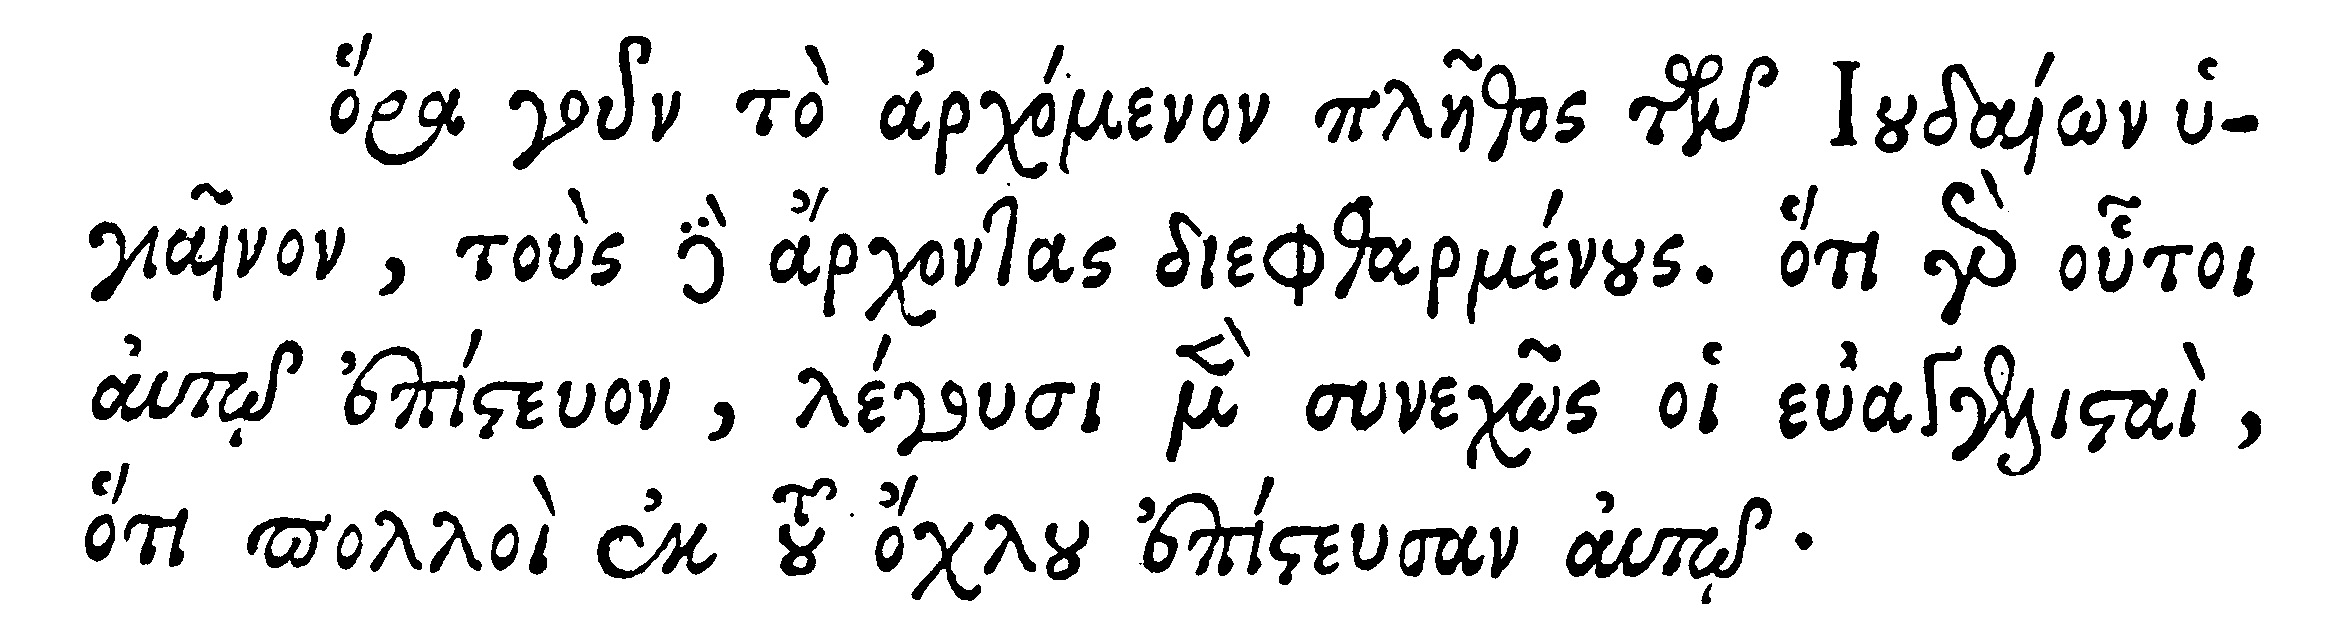 ὅρα γοῦν τὸ ἀρχόμενον πλῆθος τῶν Ιουδαίων ὑ-
γιαῖνον, τοὺς δὲ ἄρχοντας διεφθαρμένους. ὅτι γὰρ οὗτοι
ἀυτῷ ἐπίστευον, λέγουσι μὲν συνεχῶς οἱ εὐαγγελισταὶ,
ὅτι πολλοὶ ἐκ τοῦ ὄχλου ἐπίστευσαν ἀυτῷ.